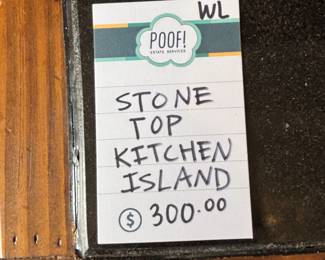 WL
POOF!
ESTATE SERVICES
STONE
TOP
KITCHEN
ISLAND
$ 300.00